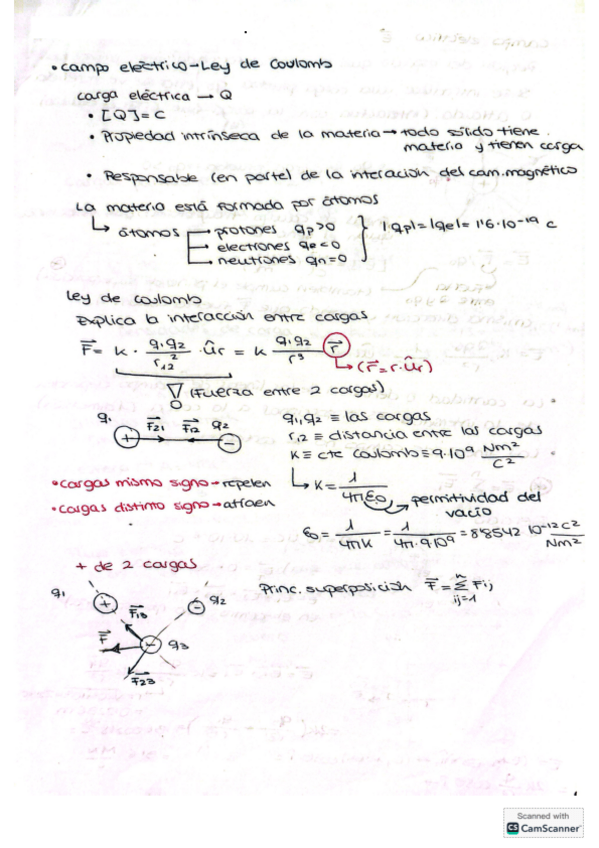 • campo eléctrico → Ley de Coulomb
carga eléctrica → Q
• [Q] = C
• Propiedad intrínseca de la materia → todo sólido tiene
materia y tienen carga
• Responsable (en parte) de la interación del cam. magnético
La materia está formada por átomos
↳ átomos → protones qp>0
→ electrones qe<0
→ neutrones qn=0
} |qp| = |qe| = 1'6·10⁻¹⁹ C
Ley de Coulomb
Explica la interacción entre cargas
F⃗ = k · q₁q₂/r₁₂² · ûr = k q₁q₂/r³ r⃗
↳ (r⃗ = r·ûr)
(Fuerza entre 2 cargas)
q₁ F⃗₂₁ F⃗₁₂ q₂
+ −
q₁,q₂ ≡ las cargas
r₁₂ ≡ distancia entre las cargas
K ≡ cte Coulomb ≡ 9·10⁹ Nm²/C²
• cargas mismo signo → repelen
• cargas distinto signo → atraen
↳ K = 1/4πε₀
permitividad del
vacío
ε₀ = 1/4πk = 1/4π·9·10⁹ = 8'8542 10⁻¹² C²/Nm²
+ de 2 cargas
Princ. superposición F⃗ = Σⁿᵢⱼ₌₁ F⃗ij
q₁ + − q₂
F⃗₁₃
F⃗ − q₃
F⃗₂₃
Scanned with
CS CamScanner